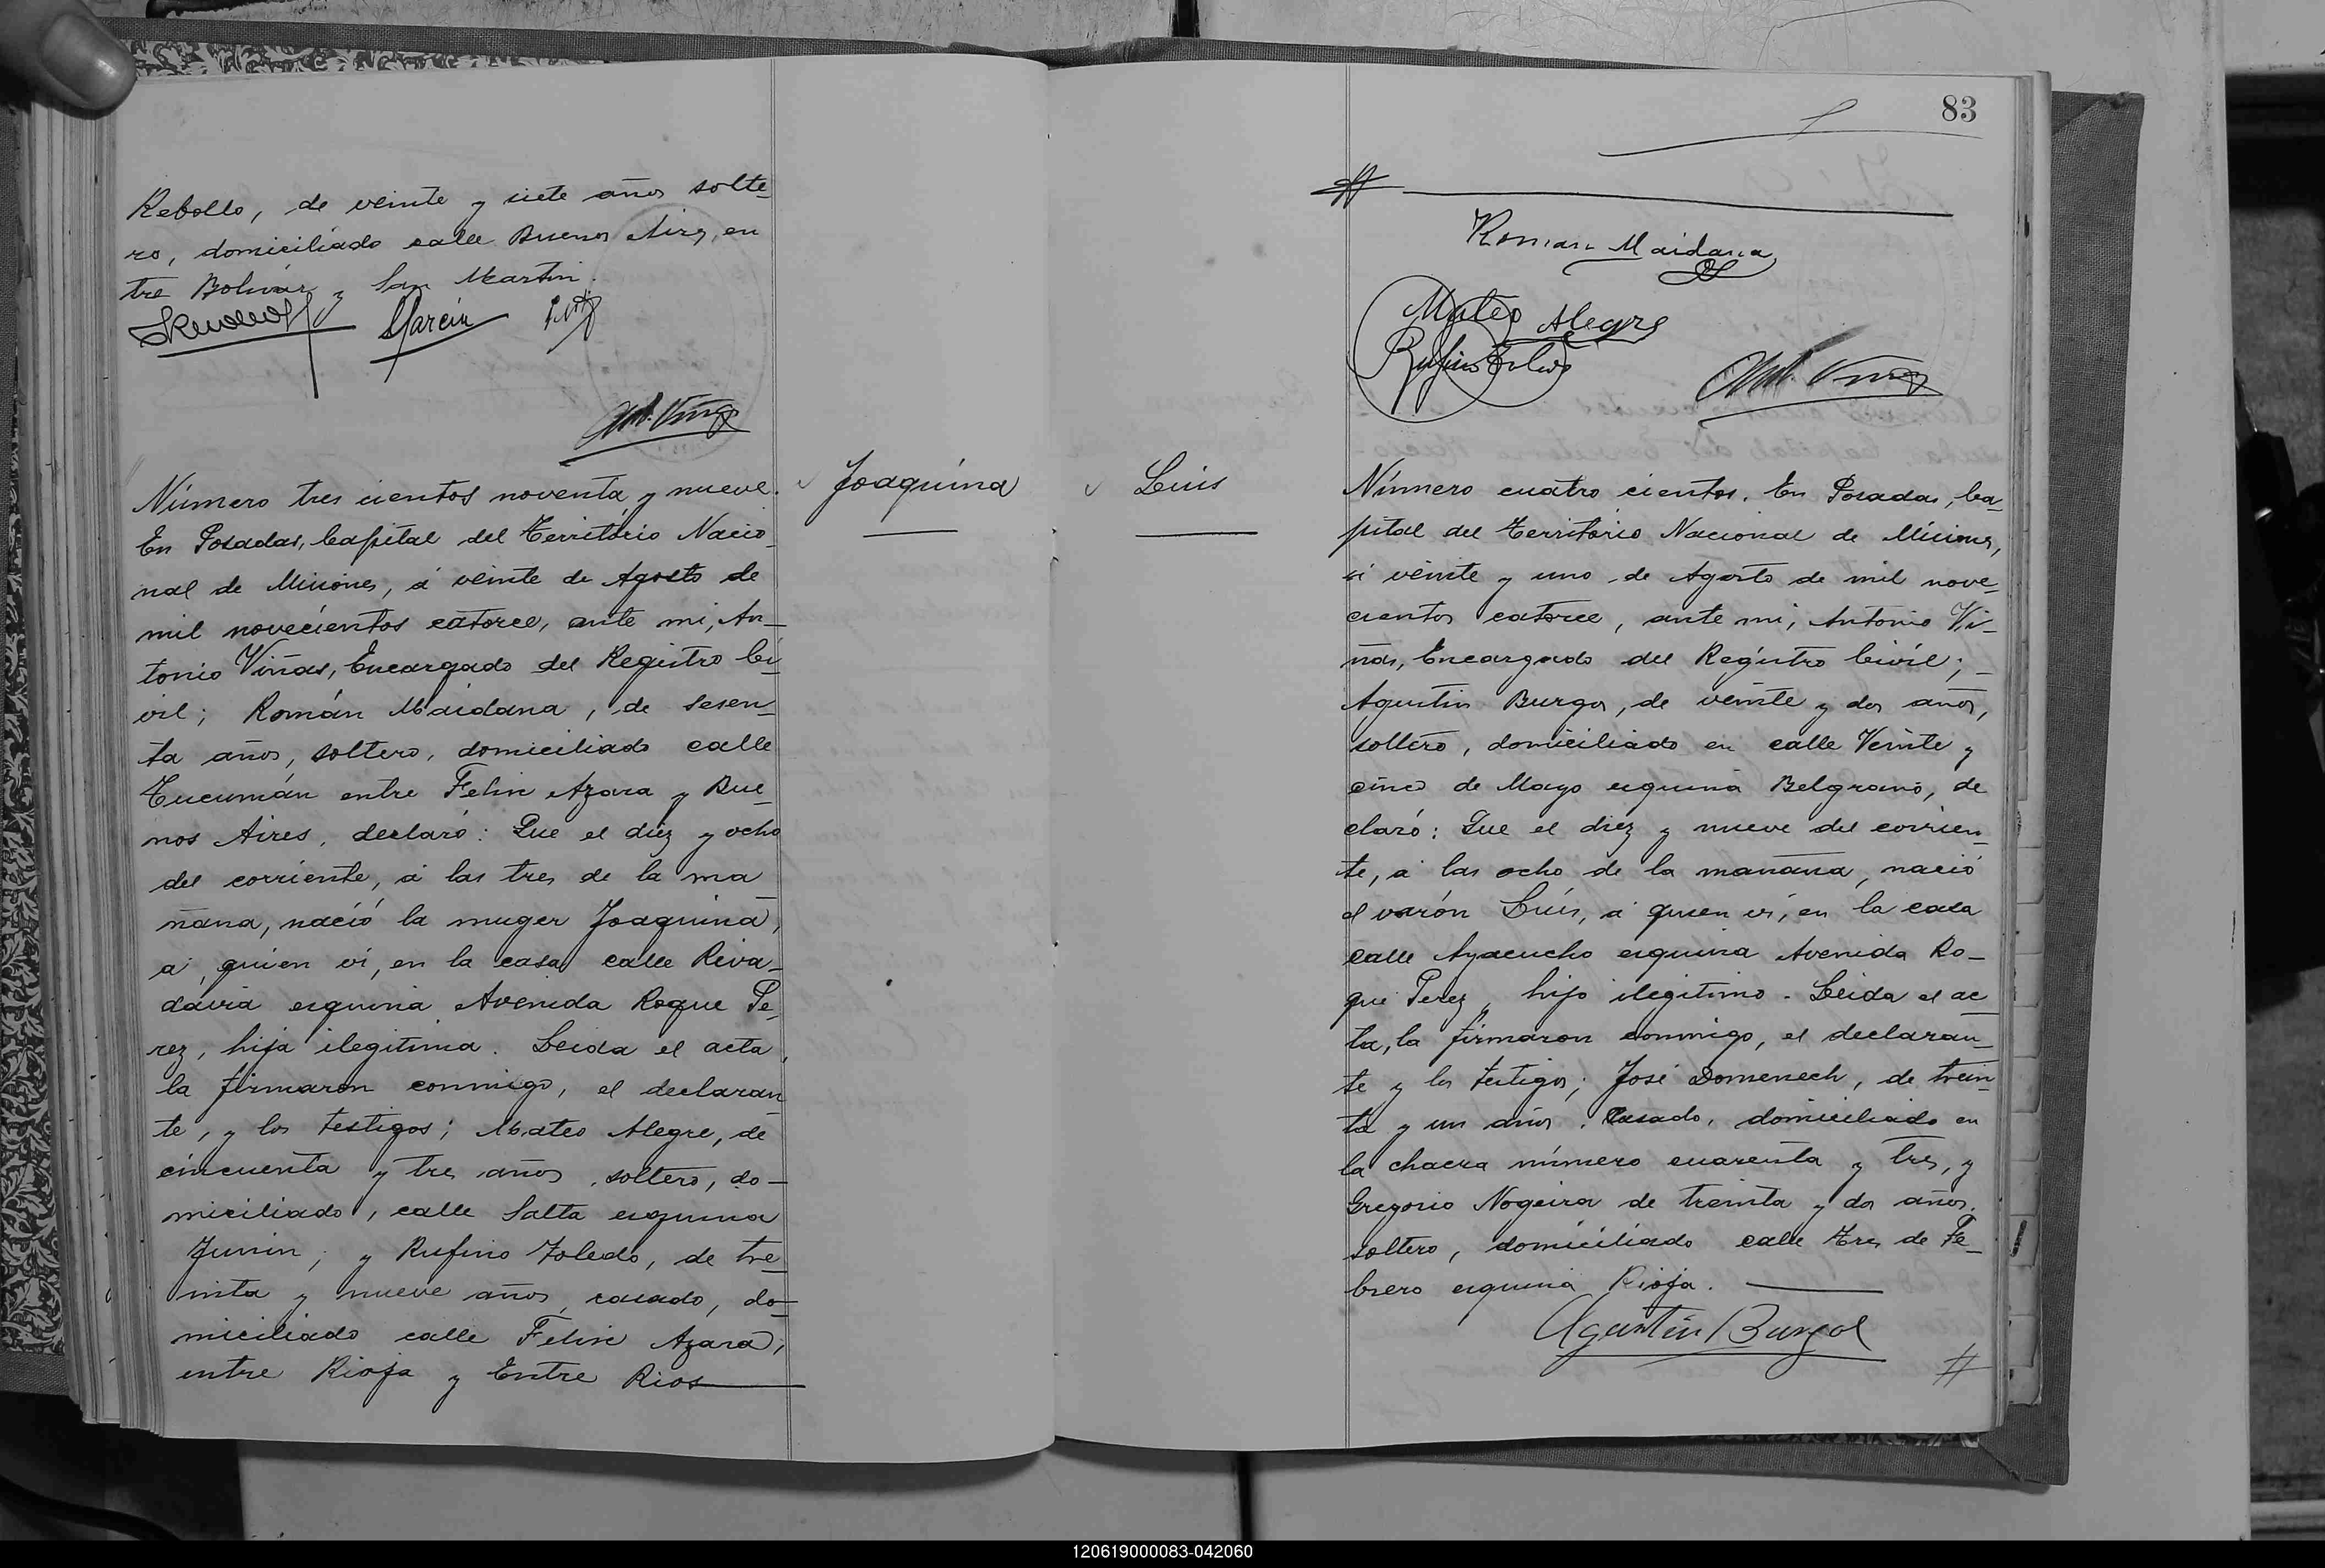 Rebollo, de veinte y siete años solte-
ro, domiciliado calle Buenos Aires, en
tre Bolivar y San Martin.
Garcia
Ant. Viñas
Número tres cientos noventa y nueve.
En Posadas, Capital del Territorio Nacio-
nal de Misiones, á veinte de Agosto de
mil novecientos catorce, ante mi, An-
tonio Viñas, Encargado del Registro Ci-
vil; Román Maidana, de sesen-
ta años, soltero, domiciliado calle
Tucumán entre Felix Azara y Bue-
nos Aires, declaró: Que el diez y ocho
del corriente, á las tres de la ma
ñana, nació la muger Joaquina,
á quien vi, en la casa calle Riva-
davia esquina Avenida Roque Pe-
rez, hija ilegitima. Leida el acta,
la firmaron conmigo, el declaran
te, y los testigos; Mateo Alegre, de
cincuenta y tres años, soltero, do-
miciliado, calle Salta esquina
Junin; y Rufino Toledo, de tre-
inta y nueve años, casado, do-
miciliado calle Felix Azara,
entre Rioja y Entre Rios
Joaquina
83
Roman Maidana
Mateo Alegre
Rufino Toledo
Ant. Viñas
Luis
Número cuatro cientos. En Posadas, Ca-
pital del Territorio Nacional de Misiones,
á veinte y uno de Agosto de mil nove-
cientos catorce, ante mi, Antonio Vi-
ñas, Encargado del Registro Civil;
Agustin Burgos, de veinte y dos años,
soltero, domiciliado en calle Veinte y
cinco de Mayo esquina Belgrano, de
claró: Que el diez y nueve del corrien-
te, á las ocho de la mañana, nació
el varón Luis, á quien vi, en la casa
calle Ayacucho esquina Avenida Ro-
que Perez, hijo ilegitimo. Leida el ac
ta, la firmaron conmigo, el declaran-
te y los testigos; José Domenech, de trein-
ta y un años, casado, domiciliado en
la chacra número cuarenta y tres, y
Gregorio Nogeira de treinta y dos años,
soltero, domiciliado calle Tres de Fe-
brero esquina Rioja.
Agustin Burgos
#
120619000083-042060